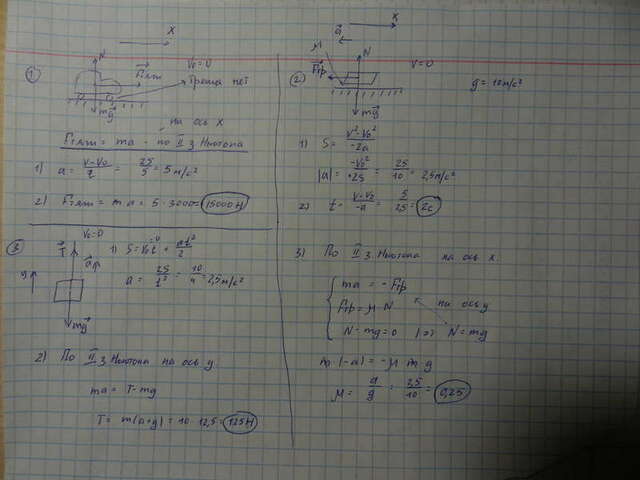 x
① N V₀=0
F⃗тяги
Трения нет
mg⃗
на ось x
Fтяги = ma - по II з Ньютона
1) a = (V-V₀)/t = 25/5 = 5 м/с²
2) Fтяги = ma = 5·3000= 15000Н
③ V₀=0
T⃗ a⃗ y
mg⃗
1) S=V₀t + at²/2
a = 2S/t² = 10/4 = 2,5м/с²
2) По II з Ньютона на ось y
ma = T-mg
T = m(a+g) = 10·12,5 = 125Н
a⃗ x
② μ N V=0 g = 10м/с²
F⃗тр
mg⃗
1) S = (V²-V₀²)/-2a
|a| = -V₀²/-2S = 25/10 = 2,5м/с²
2) t = (V-V₀)/-a = 5/2,5 = 2с
3) По II з Ньютона на ось x
ma = -Fтр
Fтр = μ N на ось y
N-mg=0 N=mg
m(-a) = -μ m g
μ = a/g = 2,5/10 = 0,25